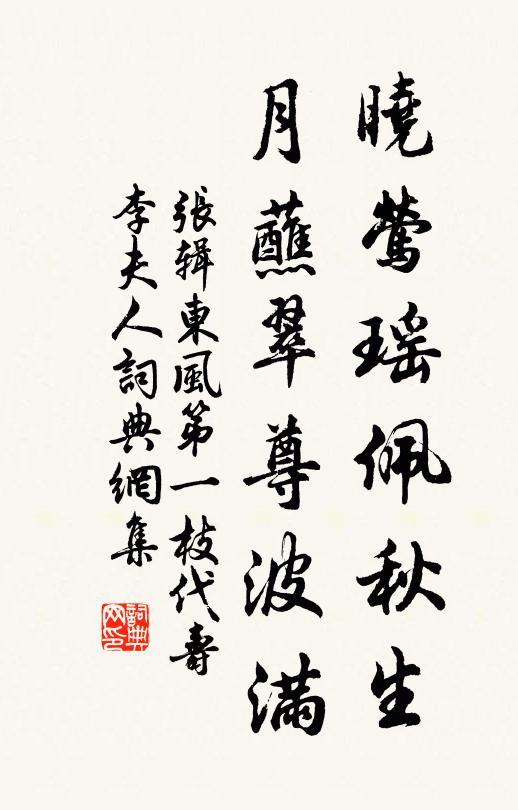 曉鶯瑶佩秋生
月蘸翠尊波满
張輯東風第一枝代壽
李夫人詞典網集
詞典
网印